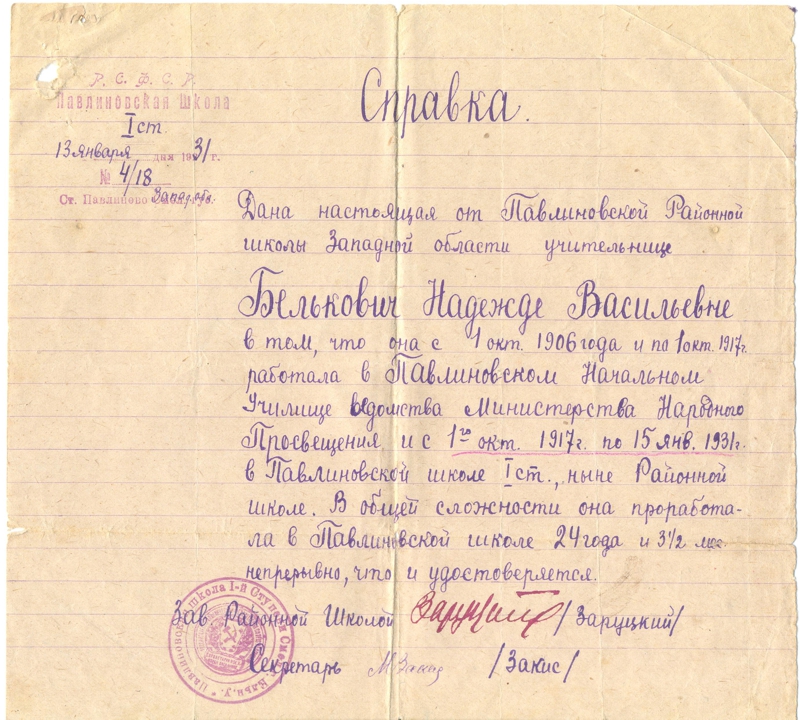 Р. С. Ф. С. Р.
Павлиновская Школа
I ст.
13 января дня 1931 г.
№ 4/18
Ст. Павлиново Запад. обл.
Справка.
Дана настоящая от Павлиновской Районной
школы Западной области учительнице
Белькович Надежде Васильевне
в том, что она с 1 окт. 1906 года и по 1 окт. 1917г.
работала в Павлиновском Начальном
Училище ведомства Министерства Народного
Просвещения и с 1го окт. 1917г. по 15 янв. 1931г.
в Павлиновской школе I ст., ныне Районной
школе. В общей сложности она проработа-
ла в Павлиновской школе 24 года и 3 1/2 мес.
непрерывно, что и удостоверяется.
Зав Районной Школой Заруцкий /Заруцкий/
Секретарь М Закис /Закис/
Павлиновская школа 1-й Ступени